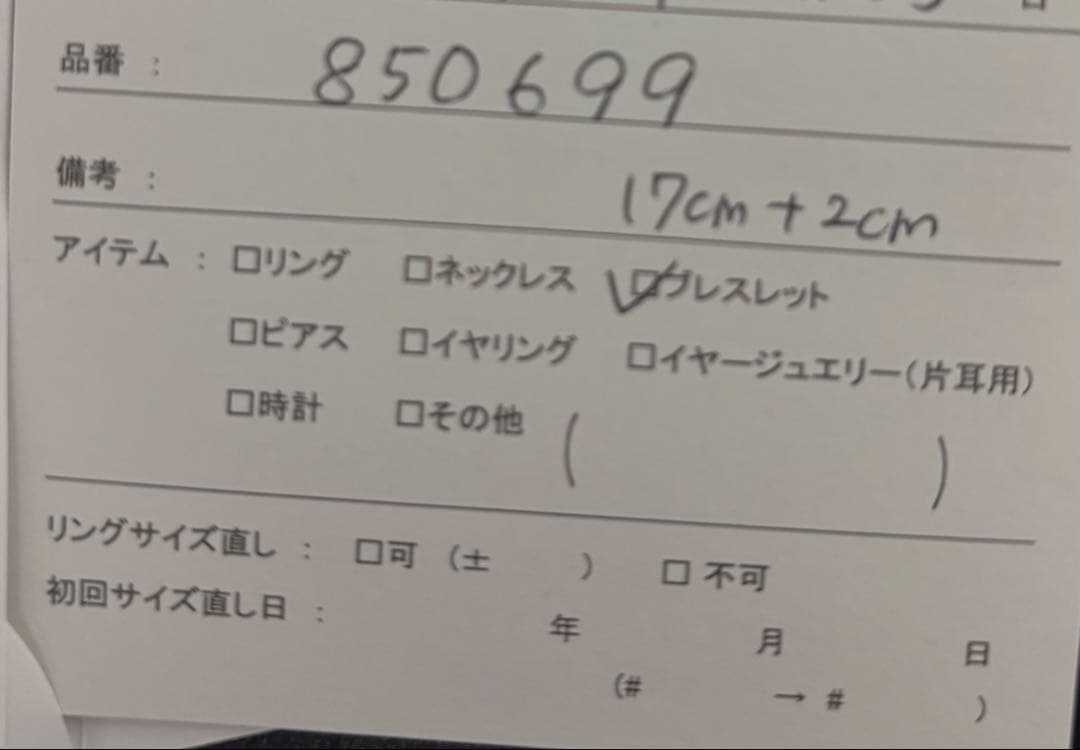 日
品番 : 850699
備考 : 17cm+2cm
アイテム : □リング □ネックレス ☑ブレスレット
□ピアス □イヤリング □イヤージュエリー(片耳用)
□時計 □その他 ( )
リングサイズ直し : □可 (± ) □ 不可
初回サイズ直し日 : 年 月 日
(# → # )